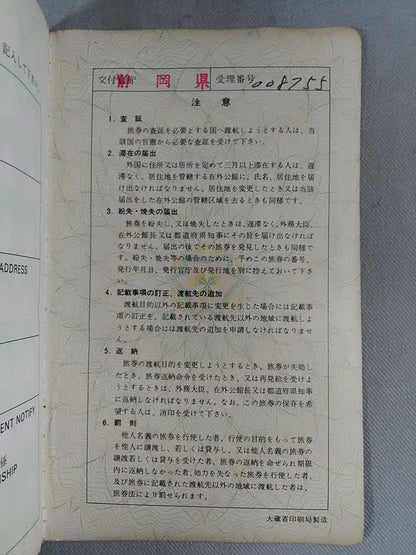 記入して下さい
交付官庁 静岡県 受理番号 008755
注意
1. 査証
旅券の査証を必要とする国へ渡航しようとする人は、当
該国の官憲から必要な査証を受けて下さい。
2. 滞在の届出
外国に住所又は居所を定めて三月以上滞在する人は、遅
滞なく、居住地を管轄する在外公館に、氏名、居住地を届
け出なければなりません。居住地を変更したとき又は当該
届出をした在外公館の管轄区域を去るときも同様です。
3. 紛失・焼失の届出
旅券を紛失し、又は焼失したときは、遅滞なく、外務大臣、
在外公館長又は都道府県知事にその旨を届け出なければ
なりません。届出の後でその旅券を発見したときも同様で
す。紛失・焼失等の場合のために、予めこの旅券の番号、
発行年月日、発行官庁及び発行地を別に控えておいて下さ
い。
4. 記載事項の訂正、渡航先の追加
渡航目的以外の記載事項に変更を生じた場合には記載事
項の訂正を、記載されている渡航先以外の地域に渡航しよ
うとする場合には渡航先の追加を申請しなければなりませ
ん。
5. 返納
旅券の渡航目的を変更しようとするとき、旅券が失効し
たとき、旅券返納命令を受けたとき、又は再発給を受けよ
うとするときは、外務大臣、在外公館長又は都道府県知事
に返納しなければなりません。なお、この旅券の保存を希
望する人は、消印を受けて下さい。
6. 罰則
他人名義の旅券を行使した者、行使の目的をもって旅券
を他人に譲渡し、若しくは貸与し、又は他人名義の旅券の
譲渡若しくは貸与を受けた者、旅券の返納を命ぜられ期限
内に返納しなかった者、効力を失なった旅券を行使した者、
及び旅券に記載された渡航先以外の地域に渡航した者は、
旅券法により罰せられます。
大蔵省印刷局製造
ADDRESS
ENT NOTIFY
係
NSHIP